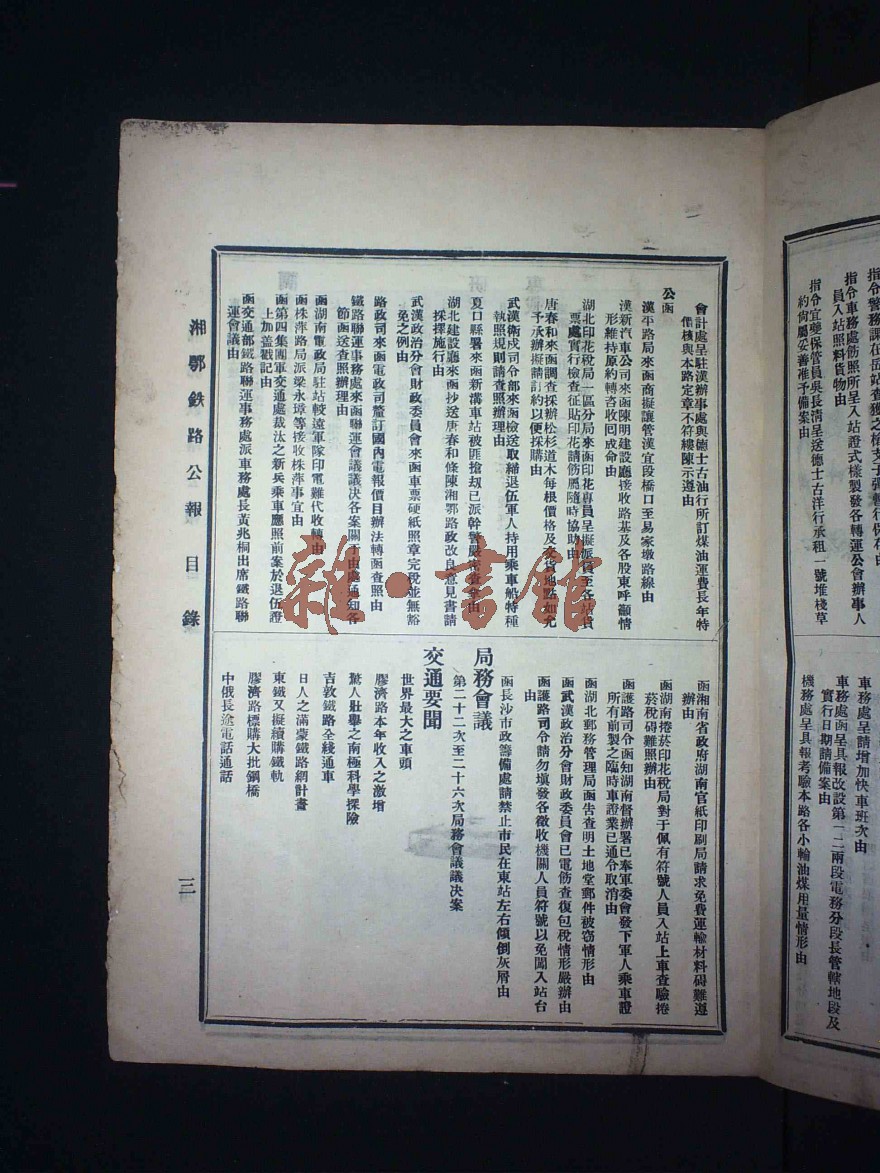 指令警務課在岳站查獲之槍支子彈暫行保存由
指令車務處飭照所呈入站證式樣製發各轉運公會辦事人
員入站照料貨物由
指令宜夔保管員吳長清呈送德士古洋行承租一號堆棧草
約尚屬妥善准予備案由
車務處呈請增加快車班次由
車務處函呈具報改設第一二兩段電務分段長管轄地段及
實行日期請備案由
機務處呈具報考驗本路各小輪油煤用量情形由
會計處呈駐漢辦事處與德士古油行所訂煤油運費長年特
價核與本路定章不符縷陳示遵由
公函
漢平路局來函商擬讓管漢宜段橋口至易家墩路線由
漢新汽車公司來函陳明建設廳接收路基及各股東呼籲情
形維持原約轉咨收回成命由
湖北印花稅局一區分局來函印花專員呈擬派員至各站貨
票處實行檢查征貼印花請飭屬隨時協助由
唐春和來函調查採辦松杉道木每根價格及交貨地點如允
予承辦擬請訂約以便採購由
武漢衛戍司令部來函檢送取締退伍軍人持用乘車船特種
執照規則請查照辦理由
夏口縣署來函新溝車站被匪搶刧已派幹警嚴密查拿由
湖北建設廳來函抄送唐春和條陳湘鄂路政改良意見書請
採擇施行由
武漢政治分會財政委員會來函車票硬紙照章完稅並無豁
免之例由
路政司來函電政司釐訂國內電報價目辦法轉函查照由
鐵路聯運事務處來函聯運會議議決各案關于由處通知各
節函送查照辦理由
函湖南電政局駐站較遠軍隊印電難代收轉由
函株萍路局派梁永璋等接收株萍事宜由
函第四集團軍交通處裁汰之新兵乘車應照前案於退伍證
上加盖戳記由
函交通部鐵路聯運事務處派車務處長黃兆桐出席鐵路聯
運會議由
函湘南省政府湖南官紙印刷局請求免費運輸材料碍難遵
辦由
函湖南捲菸印花稅局對于佩有符號人員入站上車查驗捲
菸稅碍難照辦由
函護路司令函知湖南督辦署已奉軍委會發下軍人乘車證
所有前製之臨時車證業已通令取消由
函湖北郵務管理局函告查明土地堂郵件被窃情形由
函武漢政治分會財政委員會已電飭查復包稅情形嚴辦由
函護路司令請勿填發各徵收機關人員符號以免闖入站台
由
函長沙市政籌備處請禁止市民在東站左右傾倒灰屑由
局務會議
第二十二次至二十六次局務會議議決案
交通要聞
世界最大之車頭
膠濟路本年收入之激增
驚人壯舉之南極科學探險
吉敦鐵路全綫通車
日人之滿蒙鐵路網計畫
東鐵又擬續購鐵軌
膠濟路標購大批鋼橋
中俄長途電話通話
湘鄂鉄路公報 目錄
三
雜·書館